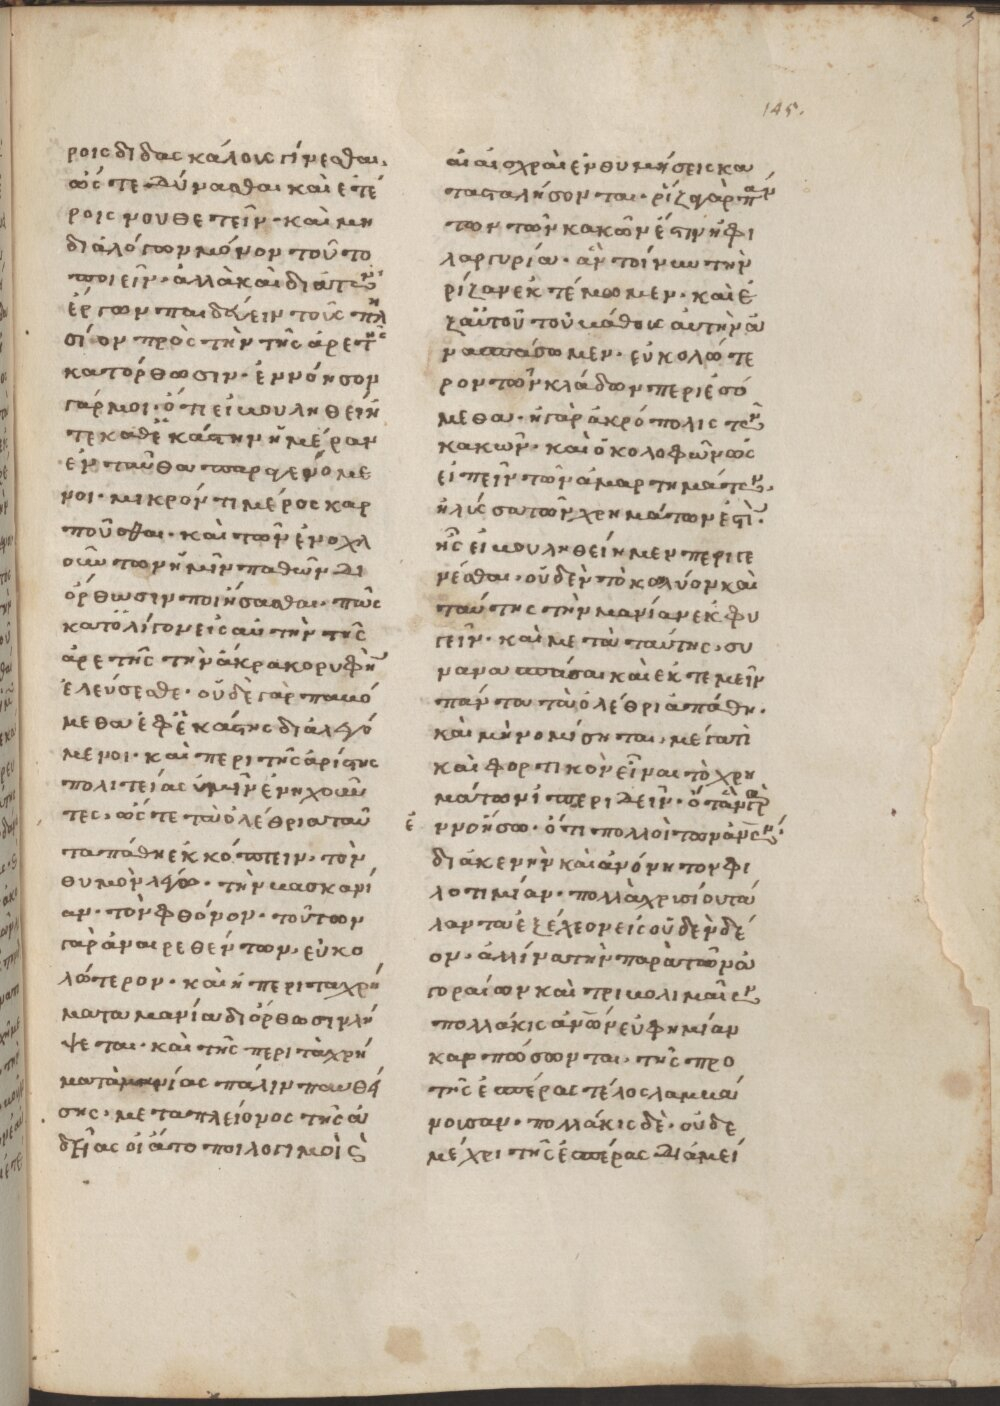 145.
ροις διδασκάλους γίνεσθαι.
ὥς τε δύνασθαι καὶ ἑτέ
ροις νουθετεῖν· καὶ μὴ
διὰ λόγων μόνον τοῦτο
ποιεῖν· ἀλλὰ καὶ διὰ τῶν
ἔργων παιδεύειν τοὺς πλη
σίον πρὸς τὴν τῆς ἀρετῆς
κατόρθωσιν· ἐννόησον
γάρ μοι· ὅτι εἰ βουληθείη
τε καθ ἑκάστην ἡμέραν
ἐνταῦθα παραγενόμε
νοι· μικρόν τι μέρος καρ
ποῦσθαι· καὶ τῶν ἐνοχλ
ούντων ἡμῖν παθῶν δι
όρθωσιν ποιήσασθαι· πῶς
κατ ὀλίγον εἰς αὐτὴν τῆς
ἀρετῆς τὴν ἄκρα κορυφὴν
ἐλεύσεσθε· οὐδὲ γὰρ παυό
μεθα ἐφ ἑκάστης διαλεγό
μενοι· καὶ περὶ τῆς ἀρίστης
πολιτείας ὑμῖν ἐνηχοῦν
τες· ὥς τε τὰ ὀλέθρια ταῦ
τα πάθη ἐκκόπτειν· τὸν
θυμὸν λέγω· τὴν βασκανί
αν· τὸν φθόνον· τούτων
γὰρ ἀναιρεθέντων· εὐκο
λώτερον· καὶ ἡ περὶ τὰ χρή
ματα μανία διόρθωσιν λή
ψεται· καὶ τῆς περὶ τὰ χρή
ματα μανίας πάλιν παυθεί
σης· μετὰ πλείονος τῆς ἀ
δείας οἱ ἄτοποι λογισμοὶ καὶ
αἱ αἰσχραὶ ἐνθυμήσεις κα
τασταλήσονται· ῥίζα γὰρ πάν
των τῶν κακῶν ἐστιν ἡ φι
λαργυρία· ἂν τοίνυν τὴν
ῥίζαν ἐκτέμωμεν· καὶ ἐ
ξ αὐτοῦ τοῦ βάθους αὐτὴν ἀ
νασπάσωμεν· εὐκολώτε
ρον τῶν κλάδων περιεσό
μεθα· ἡ γὰρ ἀκρόπολις τῶν
κακῶν· καὶ ὁ κολοφὼν ὡς
εἰπεῖν τῶν ἁμαρτημάτων·
ἡ λύσσα τῶν χρημάτων ἐστὶ·
ἧς εἰ βουληθείημεν περιγε
νέσθαι· οὐδὲν τὸ κωλύον καὶ
ταύτης τὴν μανίαν ἐκφυ
γεῖν· καὶ μετὰ ταύτης· συ
νανασπάσαι καὶ ἐκτεμεῖν
πάντα τὰ ὀλέθρια πάθη·
καὶ μὴ νομίσηται· μέγα τὶ
καὶ φορτικὸν εἶναι τὸ χρη
μάτων ὑπεριδεῖν· ὅταν γὰρ
ἐννοήσω· ὅτι πολλοὶ τῶν ἀνων·
διὰ κενὴν καὶ ἀνόνητον φι
λοτιμίαν· πολλὰ χρυσίου τά
λαντα ἐξέχεον εἰς οὐδὲν δέ
ον· ἀλλ ἵνα τὴν παρὰ τῶν ἀ
γοραίων καὶ τριωβολιμαίων
πολλάκις ἀνων εὐφημίαν
καρπώσωνται· τῆς πρὸ
τῆς ἑσπέρας τέλος λαμβά
νουσαν· πολλάκις δὲ· οὐδὲ
μέχρι τῆς ἑσπέρας διαμεί